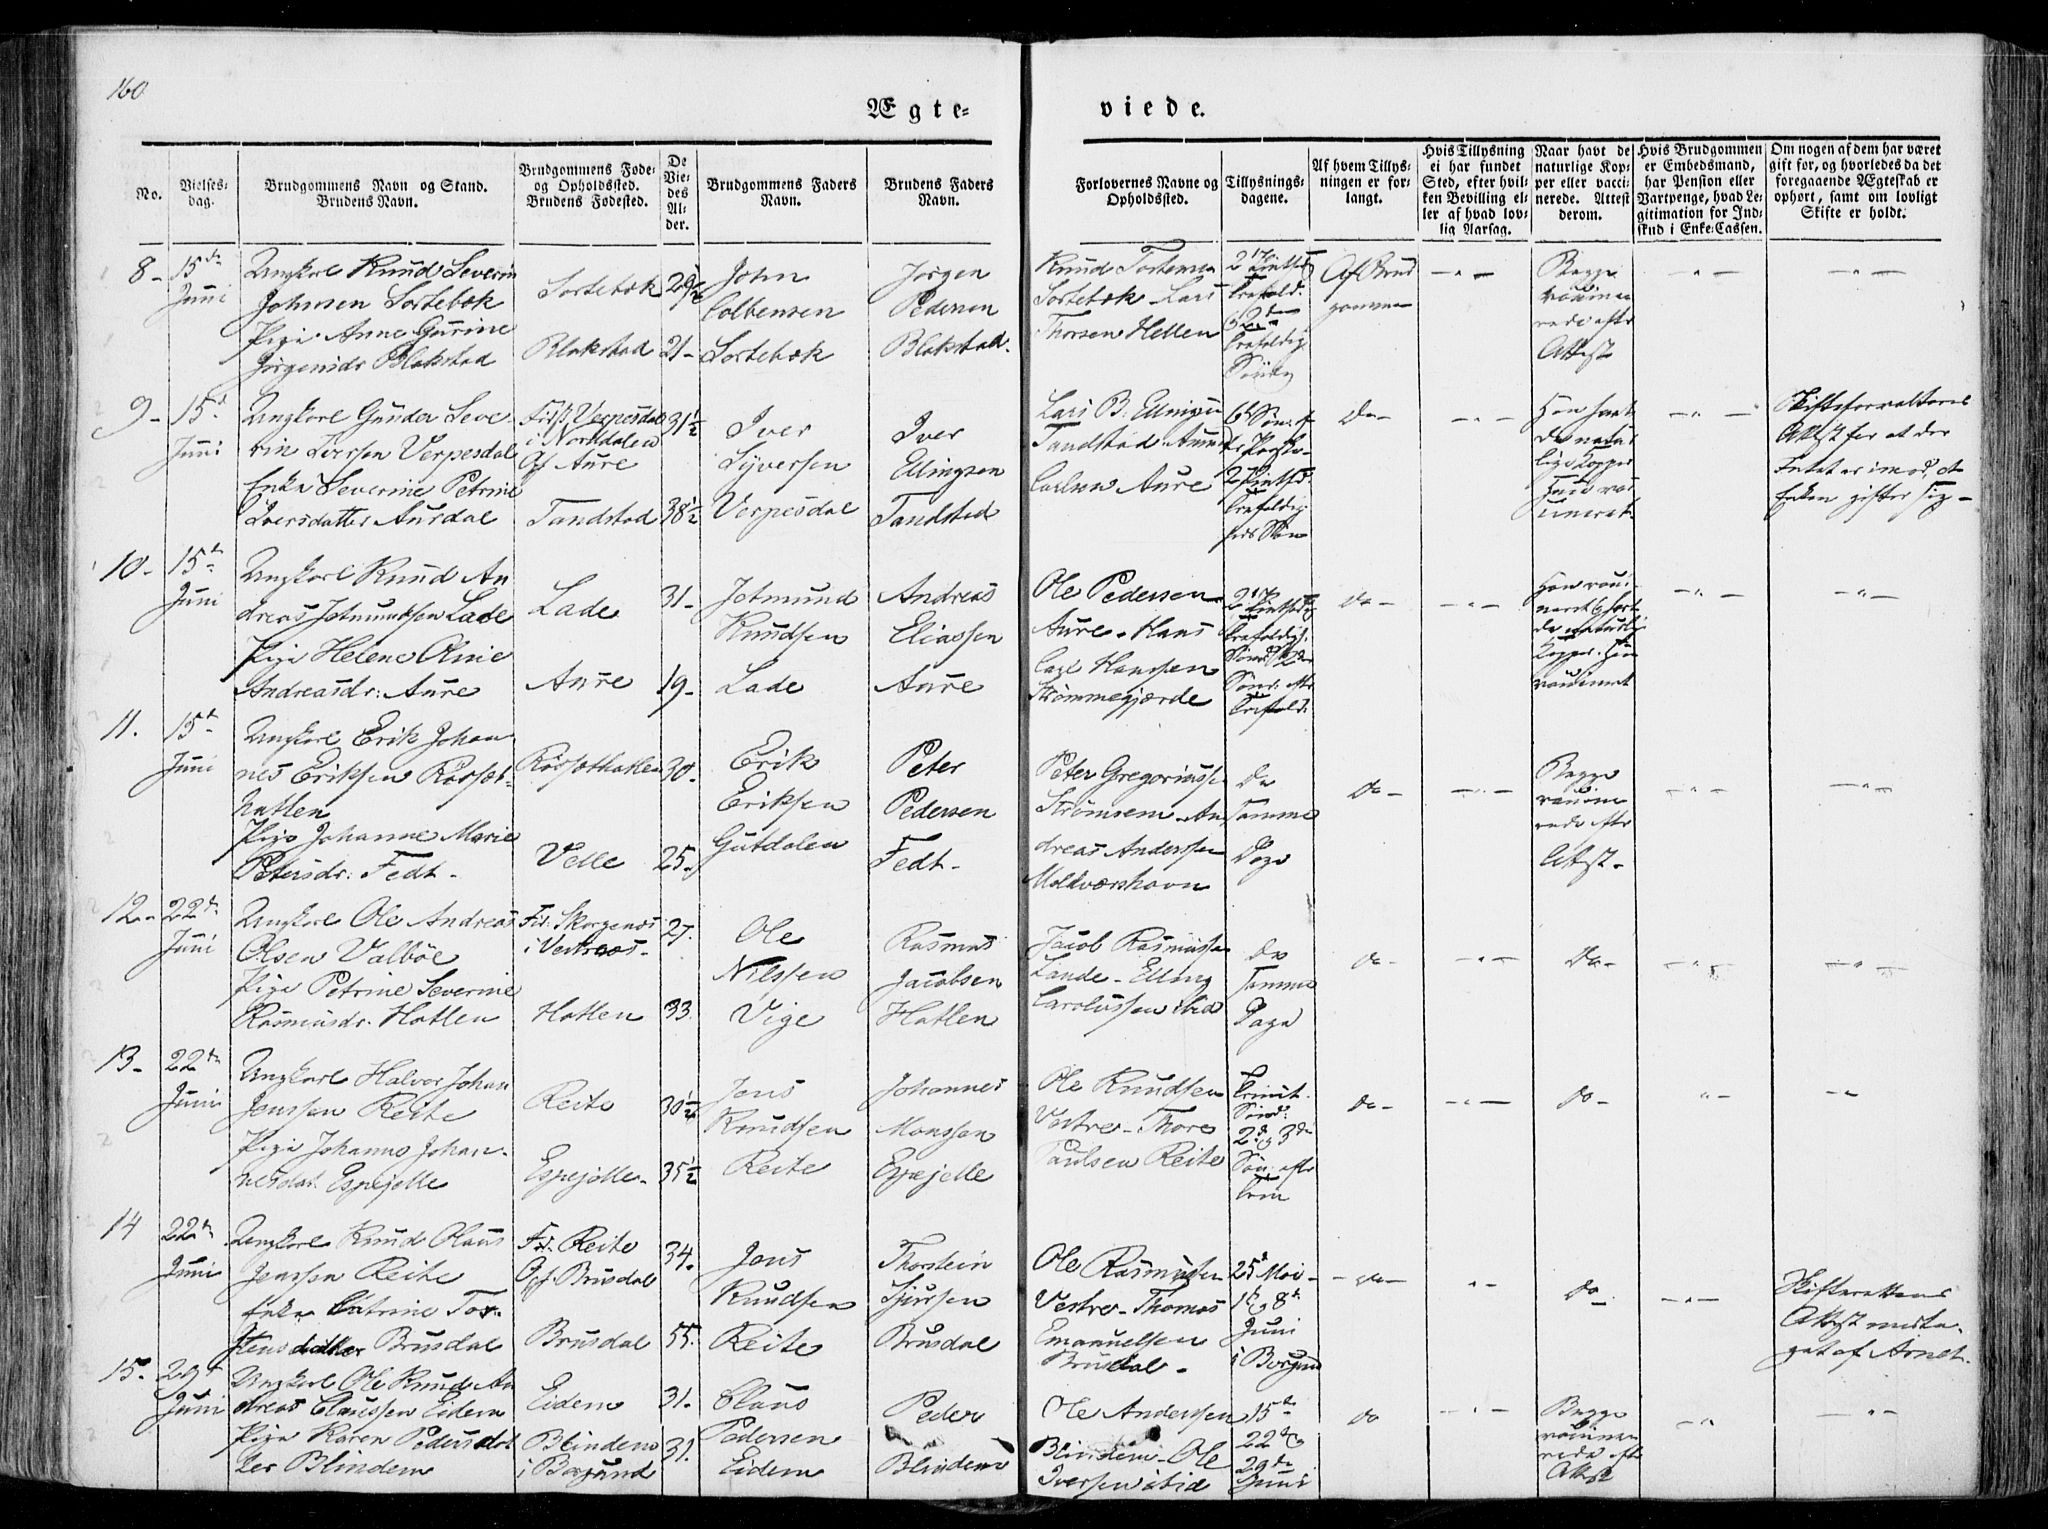 160
Ægte-
viede.
No.
Vielses-
dag.
Brudgommens Navn og Stand.
Brudens Navn.
Brudgommens Føde-
og Opholdssted.
Brudens Fødested.
De
Vie-
des
Al-
der.
Brudgommens Faders
Navn.
Brudens Faders
Navn.
Forlovernes Navne og
Opholdssted.
Tillysnings-
dagene.
Af hvem Tillys-
ningen er for-
langt.
Hvis Tillysning
ei har fundet
Sted, efter hvil-
ken Bevilling el-
ler af hvad lov-
lig Aarsag.
Naar havt de
naturlige Kop-
per eller vacci-
nerede. Attest
derom.
Hvis Brudgommen
er Embedsmand,
har Pension eller
Vartpenge, hvad Le-
gitimation for Ind-
skud i Enke-Cassen.
Om nogen af dem har været
gift før, og hvorledes da det
foregaaende Ægteskab er
ophørt, samt om lovligt
Skifte er holdt.
8-
15de
Juni
Ungkarl Knud Severin
Johnsen Sortebok
Pige Anne Gurine
Jørgensdr Blakstad
Sortebok
Blakstad
21-
John
Colbensen
Sortebok
Jørgen
Pedersen
Blakstad.
Knud
Sortebok - Lars
Thorsen Hellen
Af Brud
gommen
Begge
vaccine
rede efter
Attest
9-
15d
Juni
Ungkarl Gunder Seve-
rin Iversen Verpesdal
Enke Severine Petrine
Iversdatter Aurdal
Verpesdal
i Norddalen
Aure
Tandstad
31½
38½
Iver
Syversen
Verpesdal
Iver
Ellingsen
Tandstad
Lars B. Ellingsen
Tandstad
Carlsen Aure
Do-
Han havt
de natur
lige Kopper
Hun vac
cineret.
Skifteforvalterens
Attest for at der
Intet er imod, at
Enken gifter sig-
10-
15de
Juni
Ungkarl Knud An
dreas Jetmundsen Lade
Pige Helene Oline
Andreasdr: Aure
Lade
Aure
31-
19-
Jetmund
Knudsen
Lade
Andreas
Eliassen
Aure
Ole Pedersen
Aure - Hans
Carl Hanssen
Strømmegjærde
Do-
11.
15de
Juni
Ungkarl Erik Johan
nes Eriksen Røsset-
hatlen
Pige Johanne Marie
Petersdr: Fedt-
Røssethatlen
Velle
30-
25-
Erik
Eriksen
Gutdalen
Peter
Pedersen
Fedt-
Peter Gregoriussen
Strømsem - An
dreas Anderssen
Moldværshavn
De
Samme
Dage
Do-
Begge
vaccine
rede efter
Attest-
12-
22de
Juni
Ungkarl Ole Andreas
Olsen Valbøe
Pige Petrine Severine
Rasmusdr. Hatlen
i Vestnæs-
Hatlen
27.
33.
Ole
Nilssen
Vige
Rasmus
Jacobsen
Hatlen
Jacob Rasmussen
Lande - Elling
Carolussen ibid
De
Samme
Dage
Do-
Do-
13-
22de
Juni
Ungkarl Halvor Johan
Jenssen Reite
Pige Johanne Johan-
nesdat: Espejelle
Reite
Espejelle-
30½
35½
Jens
Knudsen
Reite
Johannes
Monssen
Espejelle
Ole Knudsen
Vestre - Thore
Paulsen Reite
Trinit.
Sønd:
2de 3de
Søn: eftr
Trin
Do-
Do-
14
22de
Juni
Ungkarl Knud Olaus
Jenssen Reite
Enke Catrine Tor-
stensdatter Brusdal
Fd. Reite
Opf. Brusdal
Brusdal
34.
55.
Jens
Knudsen
Reite
Thorstein
Sjurssen
Brusdal
Ole Rasmussen
Vestre - Thomas
Emanuelsen
Brusdal-
25de Mai-
1de 8de
Juni
i Borgund
Do-
Do-
Skifterettens
Attest modta-
get af Arnet.
15-
29de
Juni
Ungkarl Ole Knud An
dreas Claussen Eidem
Pige Karen Pedersdat
ter Blindem
Eidem
Blindem
i Borgund
31.
31.
Claus
Pedersen
Eidem
Peder
Blindem
Ole Anderssen
Blindem - Ole
Iversen ibid
15de
22de
29de
Juni
Do
Begge
vaccinee
rede efter
Attest